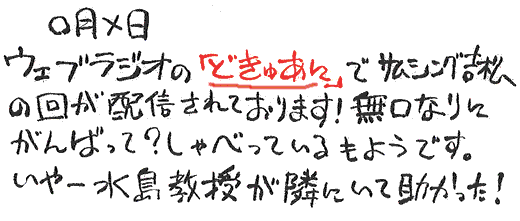 〇月×日
ウェブラジオの「どきゅあに」でサムシング吉松
の回が配信されております!無口なりに
がんばって?しゃべっているもようです。
いやー水島教授が隣にいて助かった!